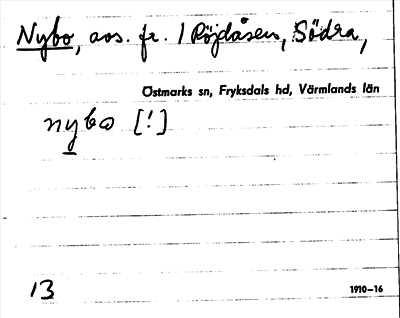 Nybo, avs. fr. 1 Röjdåsen, Södra,
Östmarks sn, Fryksdals hd, Värmlands län
nybo [!]
13
1910-16